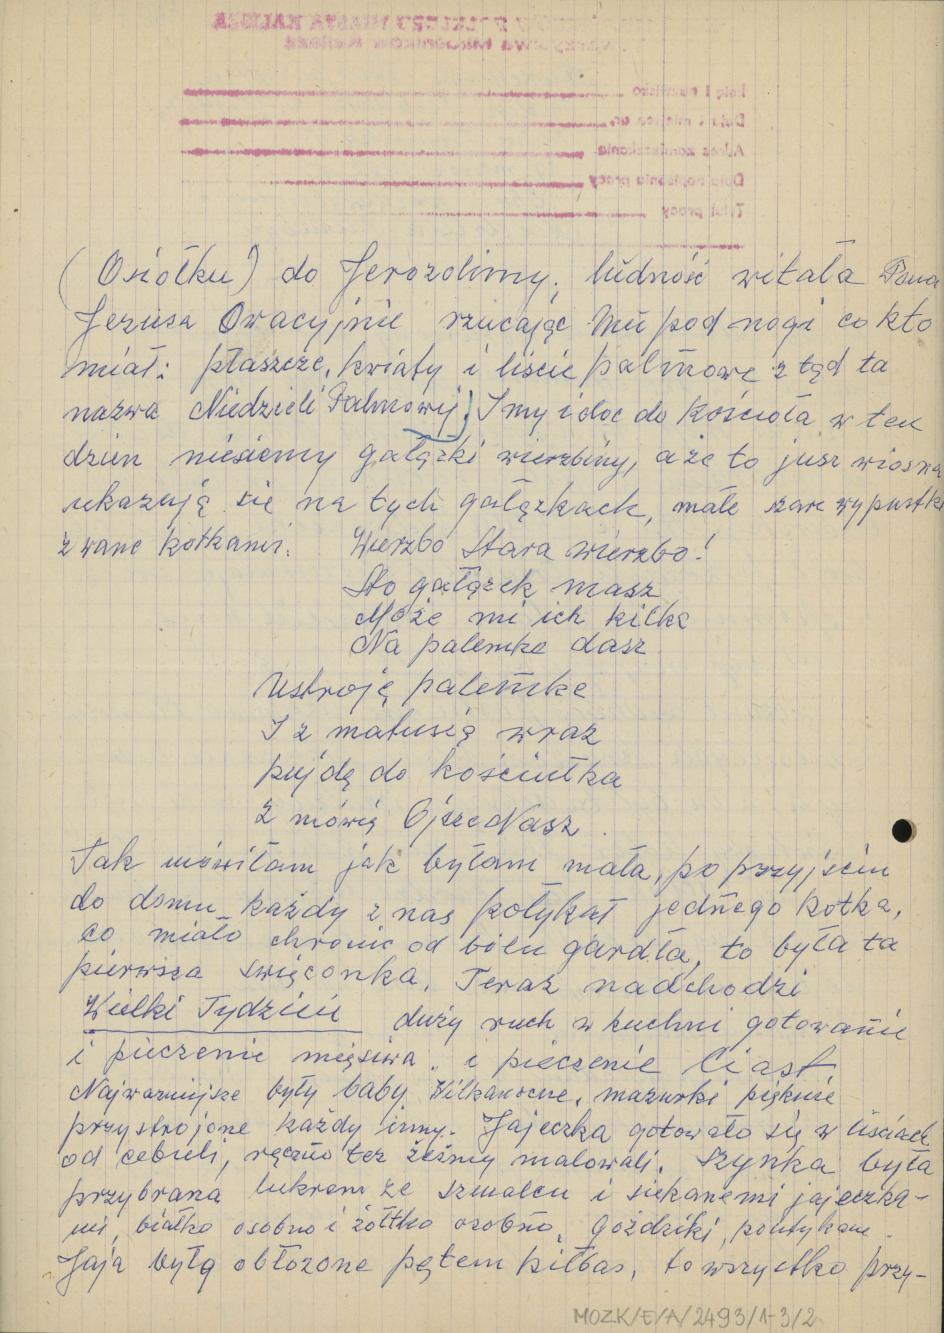 Imię i nazwisko
Data i miejsce ur.
Adres zamieszkania
Data napisania pracy
Tytuł pracy
(Osiołku) do Jerozolimy, ludność witała Pana
Jezusa Owacyjnie rzucając Mu pod nogi co kto
miał: płaszcze, kwiaty i liście palmowe z tąd ta
nazwa Niedzieli Palmowyj. I my idoc do Kościoła w ten
dzień niesiemy gałązki wierzbiny, aże to jusz wiosna
ukazują się na tych gałązkach, małe szare wypustki
zwane kotkami. Wierzbo Stara wierzbo!
Sto gałązek masz
Może mi ich kilke
Na palemke dasz
Ustroję palemke
I z matusią wraz
pujdę do kościułka
z mówią Ojcze Nasz.
Tak mówiłam jak byłam mała, po przyjściu
do domu każdy z nas połykał jednego kotka,
co miało chronic od bólu gardła, to była ta
pierwsza święconka. Teraz nadchodzi
Wielki Tydzień duży ruch w kuchni gotowanie
i pieczenie mięsiwa, i pieczenie Ciast
Najwarzniejsze były baby Wilkanocne, mazurki pięknie
przystrojone każdy inny. Jajeczka gotowało się w liściach
od cebuli, ręczno też żeśmy malowali. Szynka była
przybrana lukrem ze szmalcu i siekanemi jajeczka-
mi, białko osobno i żółtko osobno, goździki
Jaja były obłożone pętem kiłbas, to wszystko przy-
MOZK/E/A/2493/1-3/2